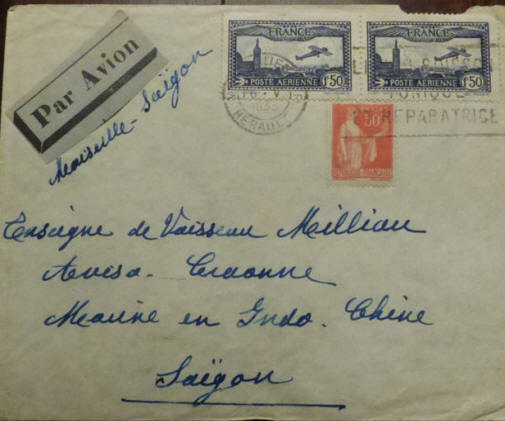 Par Avion
Marseille-Saïgon
FRANCE
POSTE AERIENNE 1f50
FRANCE
POSTE AERIENNE 1f50
HERAULT
REPARATRICE
50c
Enseigne de Vaisseau Millian
Aviso. Craonne
Marine en Indo. Chine
Saïgon